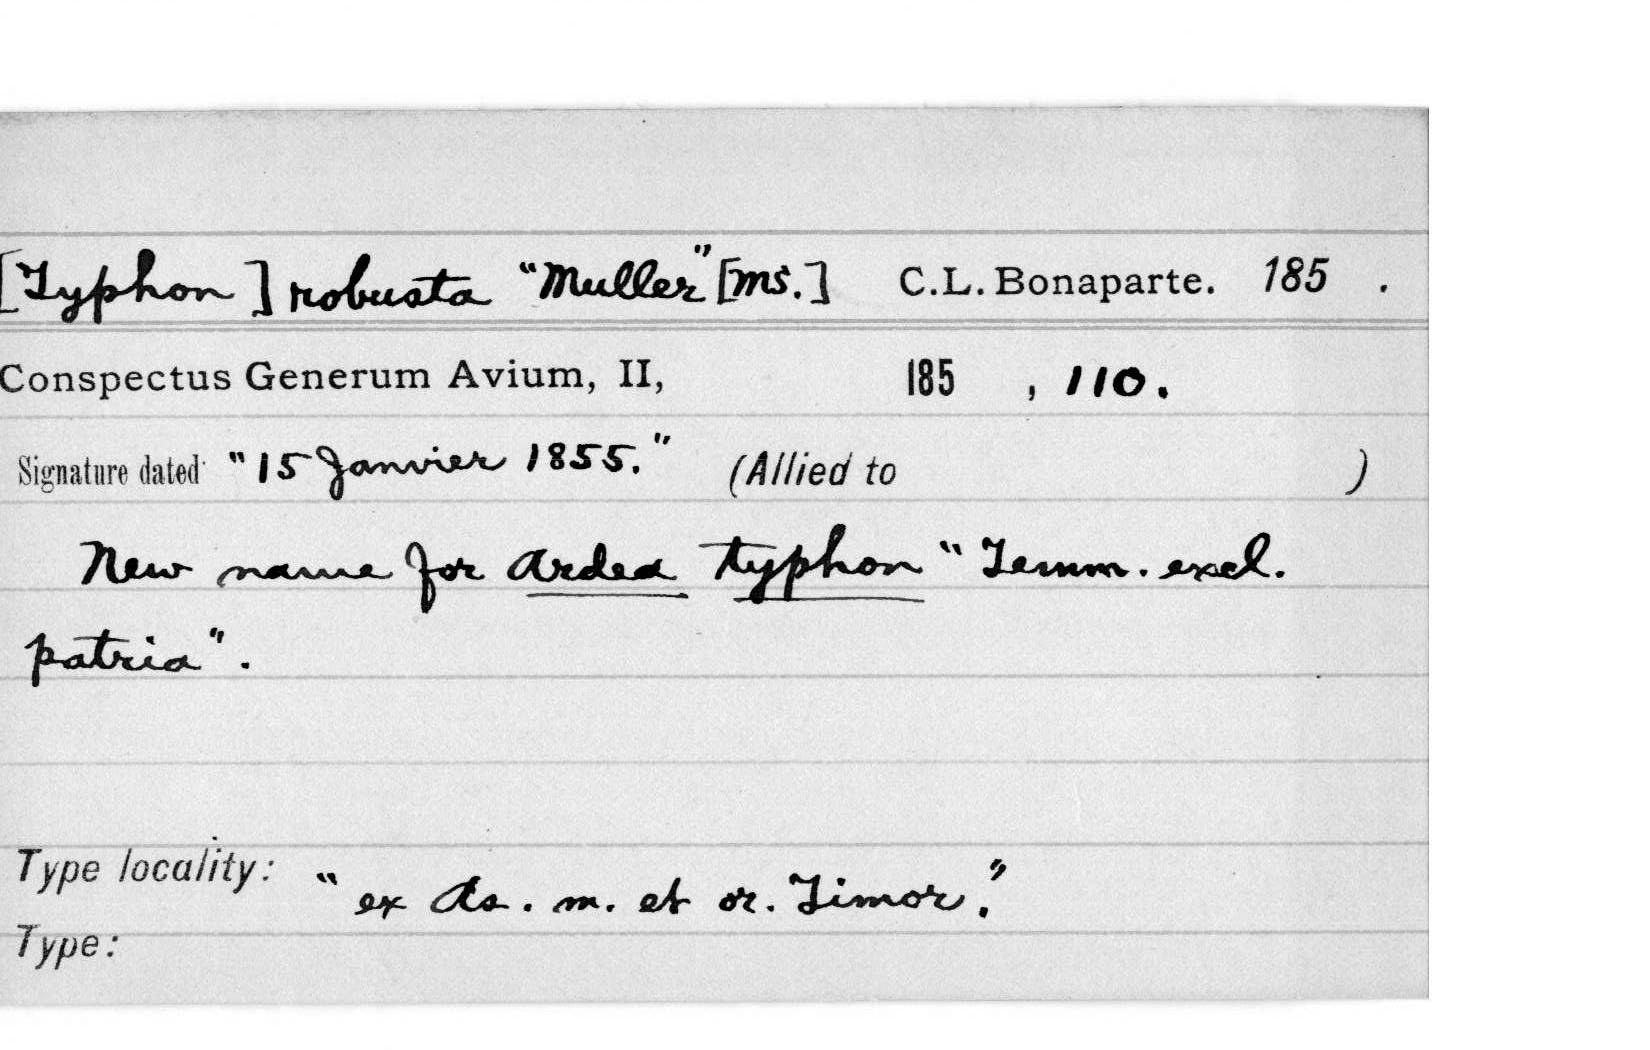 [Typhon] robusta "Muller" [ms.] C.L. Bonaparte. 185 .
Conspectus Generum Avium, II, 185 , 110.
Signature dated "15 Janvier 1855." (Allied to )
New name for Ardea typhon "Temm. excl.
patria".
Type locality: "ex As. m. et or. Timor."
Type: